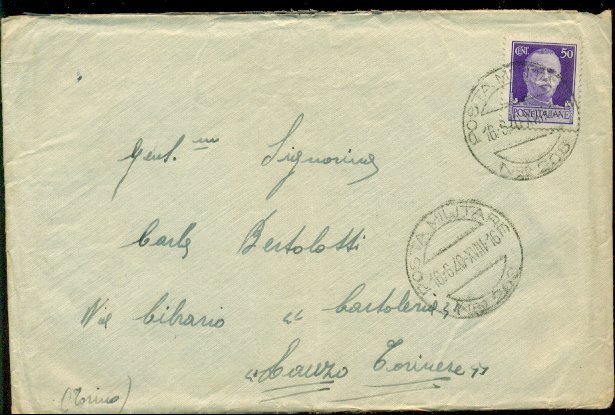 CENT. 50
POSTE ITALIANE
POSTA MILITARE
16.6.40
N° 208
Gent.ma Signorina
POSTA MILITARE
16.6.40-XVIII-16
N° 208
Carla Bertolotti
Via Cibrario "Cartoleria"
"Lanzo Torinese"
(Torino)